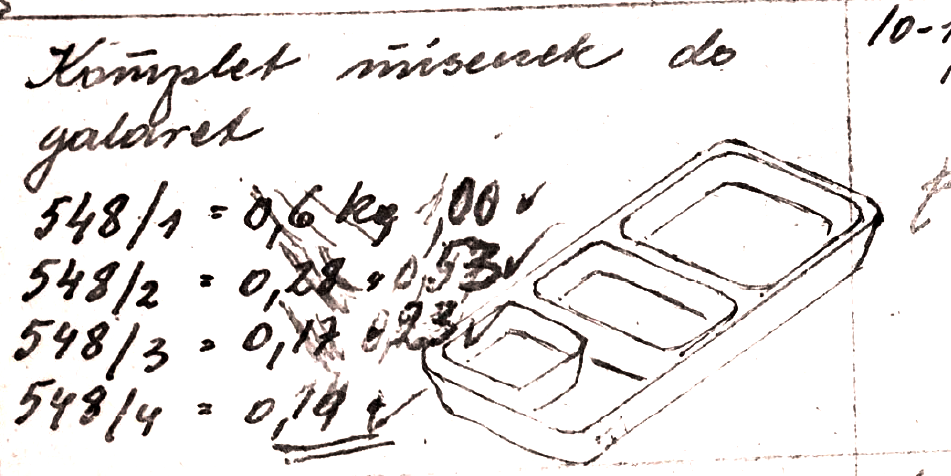 Komplet miseczek do
galaret
548/1 = 0,6 kg 1,00 ✓
548/2 = 0,28 0,53 ✓
548/3 = 0,17 0,23 ✓
548/4 = 0,14 ✓
10-1